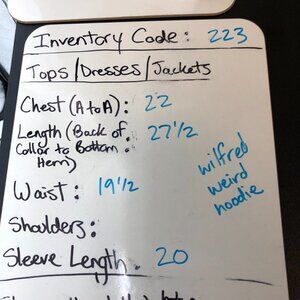 Inventory Code: 223
Tops/Dresses/Jackets
Chest (A to A): 22
Length (Back of 27 1/2
Collar to Bottom
Hem)
wilfred
weird
noodie
Waist: 19 1/2
Shoulders:
Sleeve Length. 20